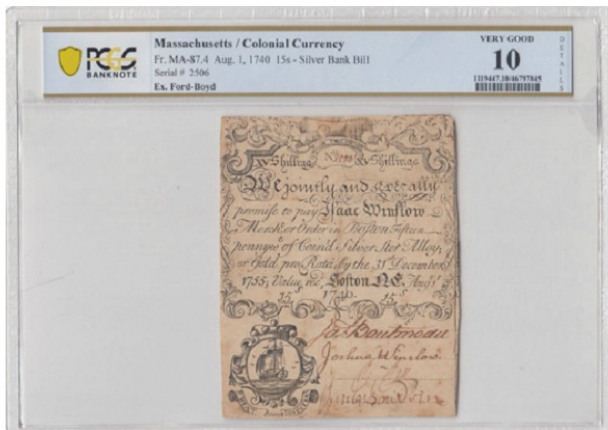 PCGS
BANKNOTE
Massachusetts / Colonial Currency
Fr. MA-87.4 Aug. 1, 1740 15s - Silver Bank Bill
Serial # 2506
Ex. Ford-Boyd
VERY GOOD
10
DETAILS
XV Shillings XV Shillings
We jointly and severally
promise to pay Isaac Winslow
Merch or Order in Boston Fifteen
of Coin'd Silver Ster Alloy,
or Gold pro Rata by the 31st December
1755, Value rec'd Boston N.E. Augst
15 1740 15
Ja Boutineau
Joshua Winslow